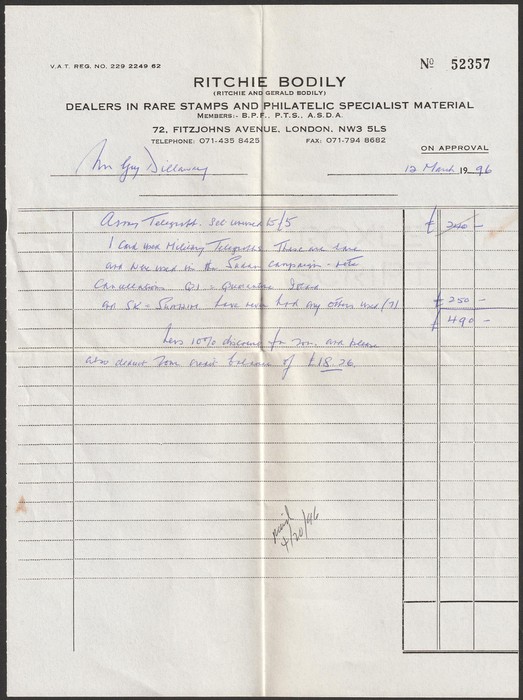 V.A.T. REG. NO. 229 2249 62
No 52357
RITCHIE BODILY
(RITCHIE AND GERALD BODILY)
DEALERS IN RARE STAMPS AND PHILATELIC SPECIALIST MATERIAL
MEMBERS:- B.P.F., P.T.S., A.S.D.A.
72, FITZJOHNS AVENUE, LONDON, NW3 5LS
TELEPHONE: 071-435 8425 FAX: 071-794 8682
ON APPROVAL
Mr Guy Dillaway
12 March 1996
Army Telegraph. Set unused to 5/5 £ 240 -
1 Card used Military Telegraphs. These are rare
and were used in the Suakin campaign - note
Cancellations QI = Quarantine Island
and SK = Suakin. have never had any others used (7) £ 250 -
£ 490 -
Less 10% discount for you and please
also deduct your credit balance of £18.26.
paid
4/20/96